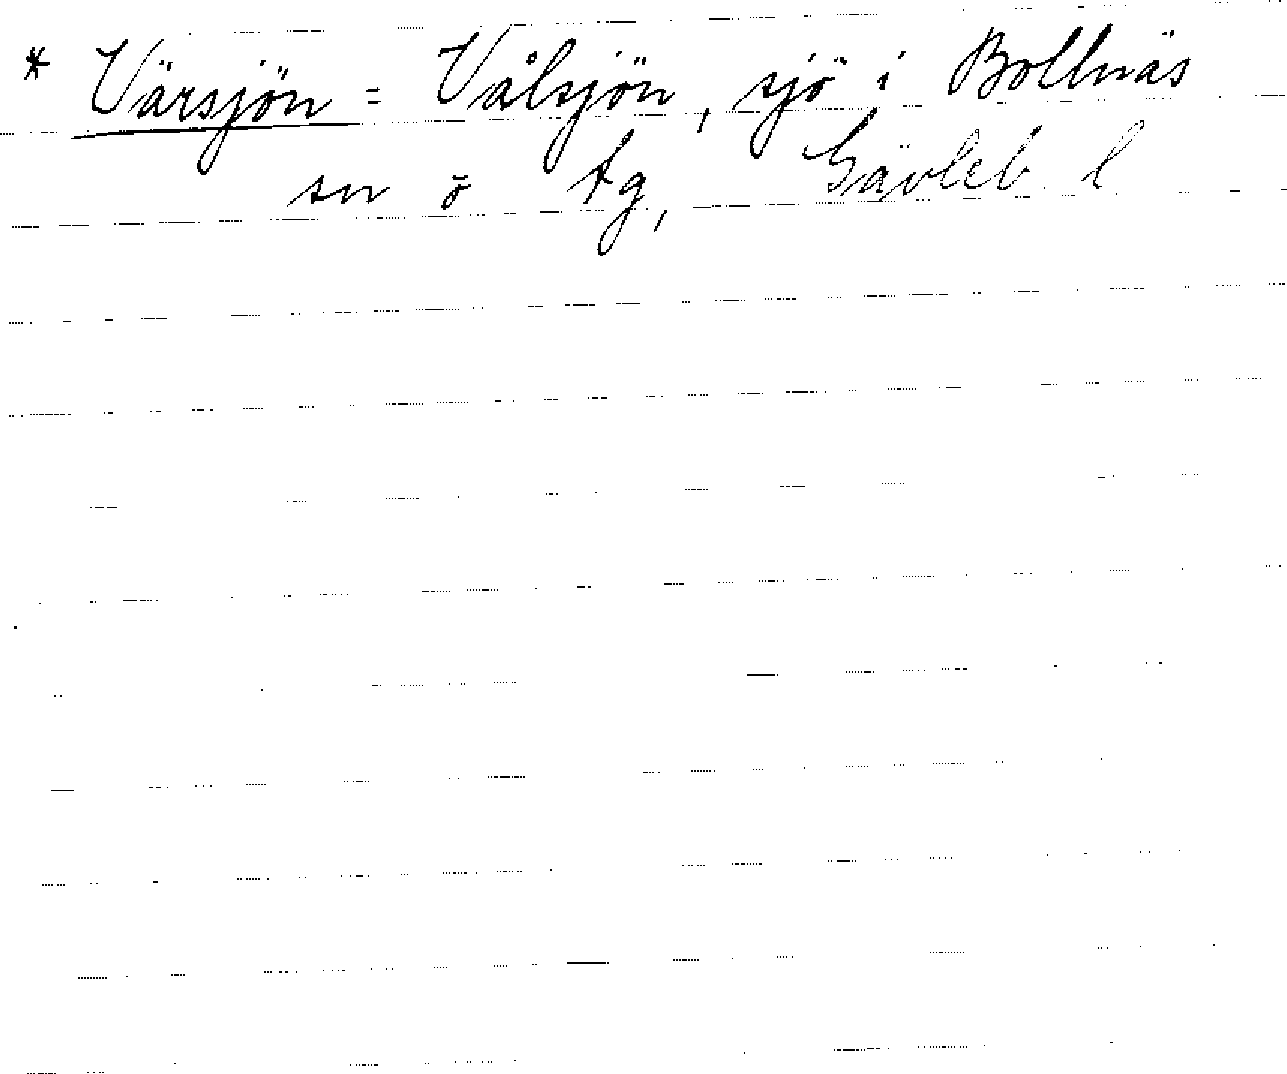 * Värsjön = Välsjön, sjö i Bollnäs
sn o tg, Gävleb l